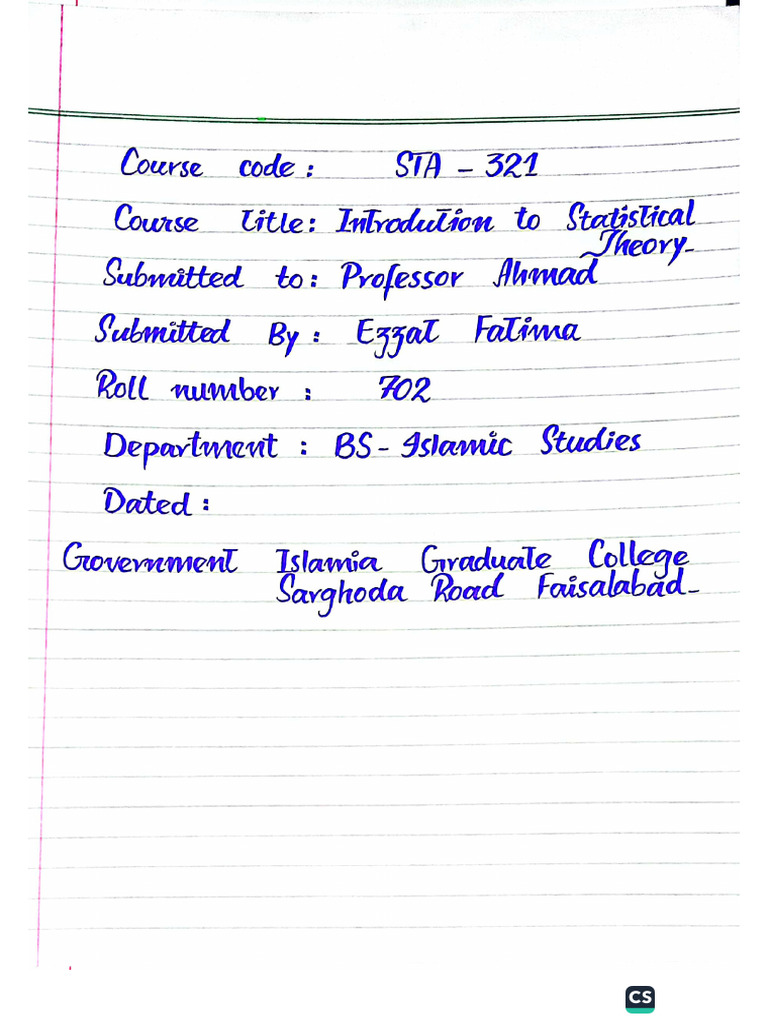 Course code : STA - 321
Course title : Introdution to Statistical
Theory-
Submitted to : Professor Ahmad
Submitted By : Ezzat Fatima
Roll number : 702
Department : BS - Islamic Studies
Dated :
Government Islamia Graduate College
Sarghoda Road Faisalabad-
CS